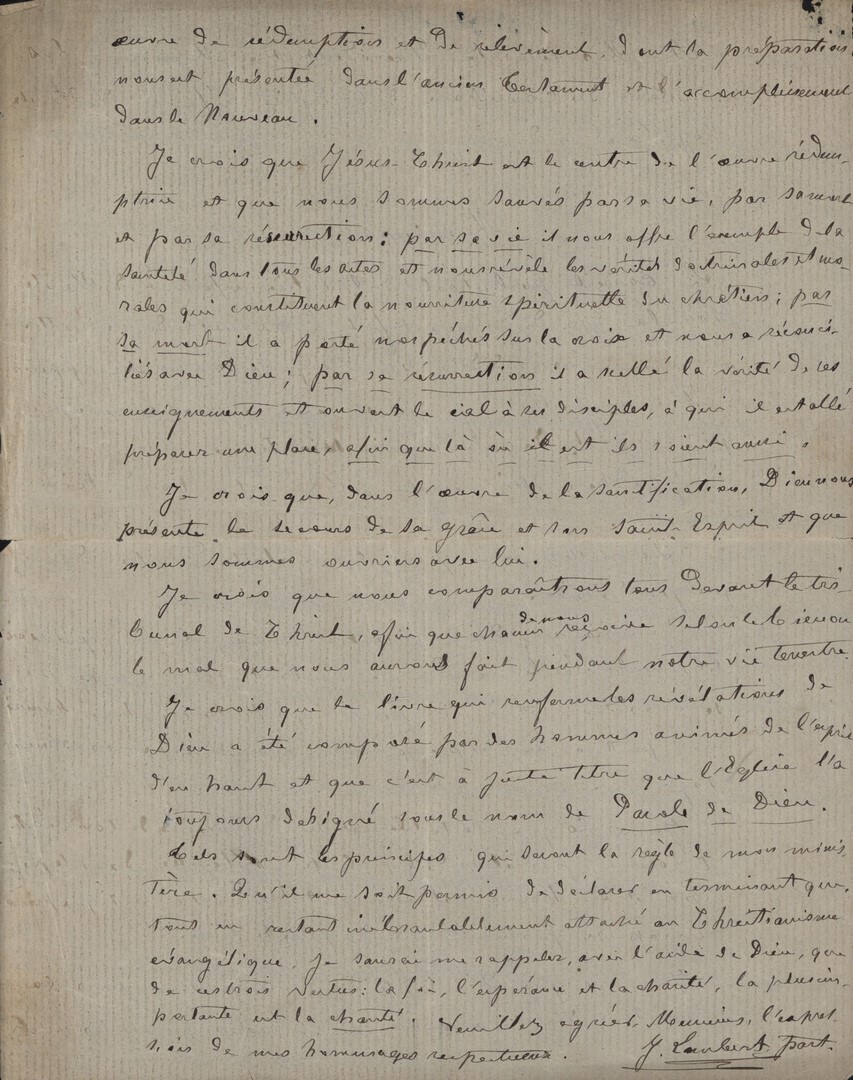 œuvre de rédemption et de relèvement, dont la préparation
nous est présentée dans l'ancien Testament et l'accomplissement
dans le Nouveau.
Je crois que Jésus-Christ est le centre de l'œuvre rédem-
ptrice et que nous sommes sauvés par sa vie, par sa mort
et par sa résurrection: par sa vie il nous offre l'exemple de la
sainteté dans tous les actes et nous révèle les vérités doctrinales et mo-
rales qui constituent la nourriture spirituelle du chrétien; par
sa mort il a porté nos péchés sur la croix et nous a réconci-
liés avec Dieu; par sa résurrection il a scellé la vérité de ses
enseignements et ouvert le ciel à ses disciples, à qui il est allé
préparer une place, afin que là où il est ils soient aussi.
Je crois que, dans l'œuvre de la sanctification, Dieu nous
présente le secours de sa grâce et son Saint-Esprit et que
nous sommes ouvriers avec lui.
Je crois que nous comparaîtrons tous devant le tri-
bunal de Christ, afin que chacun de nous reçoive selon le bien ou
le mal que nous aurons fait pendant notre vie terrestre.
Je crois que le livre qui renferme les révélations de
Dieu a été composé par des hommes animés de l'esprit
d'en haut et que c'est à juste titre que l'Eglise l'a
toujours désigné sous le nom de Parole de Dieu.
Tels sont les principes qui seront la règle de mon minis-
tère. Qu'il me soit permis de déclarer en terminant que,
tout en restant inébranlablement attaché au Christianisme
évangélique, je saurai me rappeler, avec l'aide de Dieu, que
de ces trois vertus: la foi, l'espérance et la charité, la plus im-
portante est la charité. Veuillez agréer, Messieurs, l'expres-
sion de mes hommages respectueux. J. Lambert past.